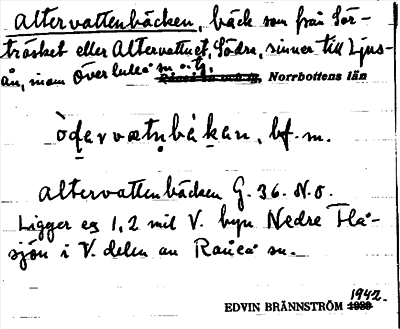 Altervattenbäcken, bäck som från Sör-
träsket eller Altervattnet, Södra, rinner till Ljus-
ån, inom Överluleå sn o. tg.
Norrbottens län
àd̯ərvætn̥bàkən, bf. m.
Altervattenbäcken G. 36. N.O.
Ligger ca 1,2 mil V. byn Nedre Flå-
sjön i V. delen av Råneå sn.
1942.
EDVIN BRÄNNSTRÖM 1939